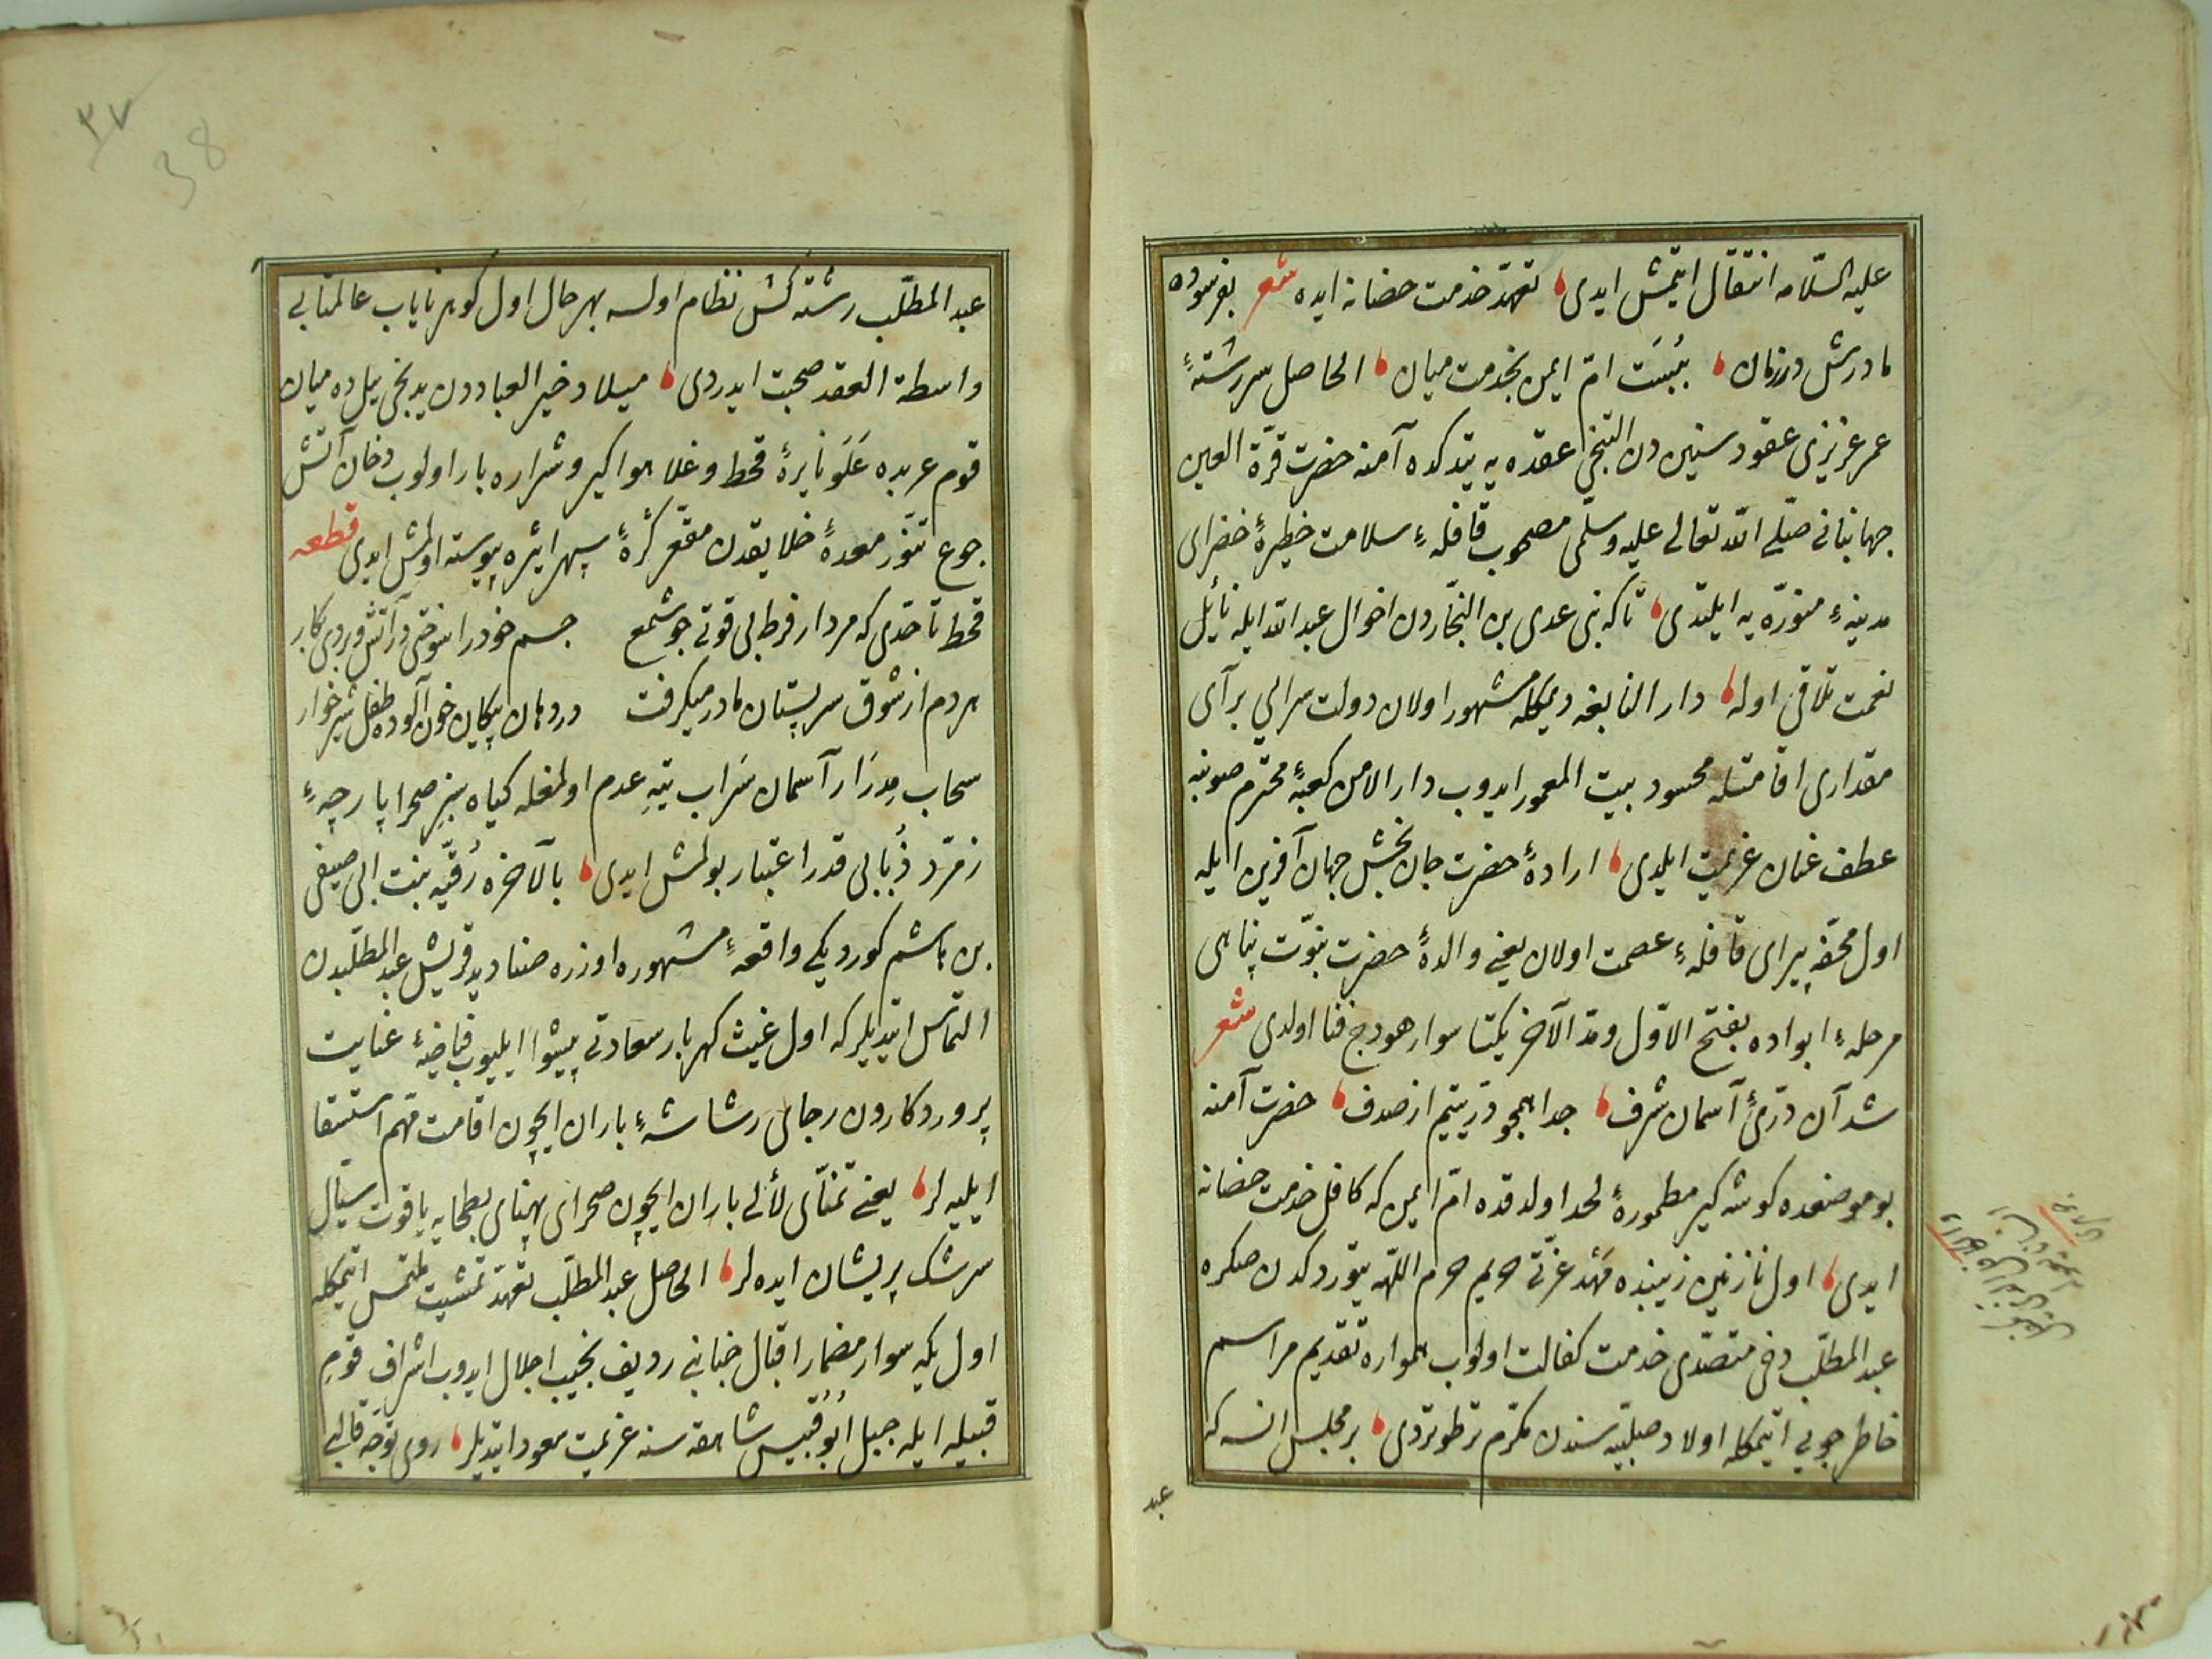 عليه السّلامه انتقال ايتمش ايدى تعهّد خدمت حضانه ايده شعر بفرسوده
مادرش در زمان ببُست امّ ايمن بخدمت ميان الحاصل سررشتهٔ
عمر عزيزى عقود سنين دن التنجى عقده يه يتدكده آمنه حضرت قرّة العين
جهانبانى صلّى الله تعالى عليه وسلّمى مصحوب قافلهٔ سلامت خطيرهٔ خضراى
مدينهٔ منوّره يه ايلتدى تاكه بنى عدى بن النجّاردن اخوال عبد الله ايله نائل
نعمت تلاقى اوله دار النابغه ديمكله مشهور اولان دولت سرايى بر آى
مقدارى اقامتله محسود بيت المعمور ايدوب دار الامن كعبهٔ محترم صوبنه
عطف عنان عزيمت ايلدى ارادهٔ حضرت جان بخش جهان آفرين ايله
اول محفّه پيراى قافلهٔ عصمت اولان يعنى والدهٔ حضرت نبوّت پناهى
مرحلهٔ ابواده بفتح الاوّل ومدّ الآخر يكتا سوار هودج فنا اولدى شعر
شد آن درّىٔ آسمان شرف جدا همچو درّ يتيم از صدف حضرت آمنه
بو موضعده كوشه كير مطمورهٔ لحد اولدقده امّ ايمن كه كافل خدمت حضانه
ايدى اول نازنين زيبنده مَهْد عزّتى حريم حرم اللهه يتوردكدن صكره
عبد المطلّب دخى متصدّى خدمت كفالت اولوب همواره تقديم مراسم
خاطر جويى ايتمكله اولاد صلبيّه سندن مكرّم ترطوتردى بر مجلس انسه كه
عبد
٣٧
38
عبد المطلّب رشته كش نظام اولسه بهر حال اول كوهر ناياب عالمتابى
واسطة العقد صحبت ايدردى ميلاد خير العباددن يدنجى ييلده ميان
قوم عربده عَلَو نايرهٔ قحط وغلا هواكير وشراره بار اولوب دخان آتش
جوع تنّور معدهٔ خلايقدن مقعّر كُرهٔ سپهر اثيره پيوسته اولمش ايدى قطعه
قحط تا حدّى كه مردار فرط بى قوتى جو شمع جسم خود را سوختى در آتش و بردى بكار
هردم از شوق سر پستان مادر ميكرفت در دهان پيكان خون آلوده طفل شيرخوار
سحاب مِدرَار آسمان سَراب تيهِ عدم اولمغله كياه سبزِ صحرا پارچهٔ
زمرّد ذُبابى قدر اعتبار بولمش ايدى بالآخره رُقيّه بنت ابى صيفى
بن هاشم كورديكى واقعهٔ مشهوره اوزره صناديد قريش عبد المطلّبدن
التماس ايتديلر كه اول غيث كهربار سعادتى پيشوا ايليوب فياضىٔ عنايت
پروردكاردن رجاى رشاشهٔ باران ايچون اقامت مهّم استسقا
ايليه لر يعنى تمنّاى لألى باران ايچون صحراى پهناى بطحايه ياقوت سيّال
سرشك پريشان ايده لر الحاصل عبد المطلّب تعهّد تمشيت ملتمس ايتمكله
اول يكه سوار مضمار اقبال جنابنى رديف نجيب اجلال ايدوب اشراف قوم
قبيله ايله جبل اَبُو قُبَيس شاهقه سنه عزيمت صعود ايتديلر روى توجّه قالبى